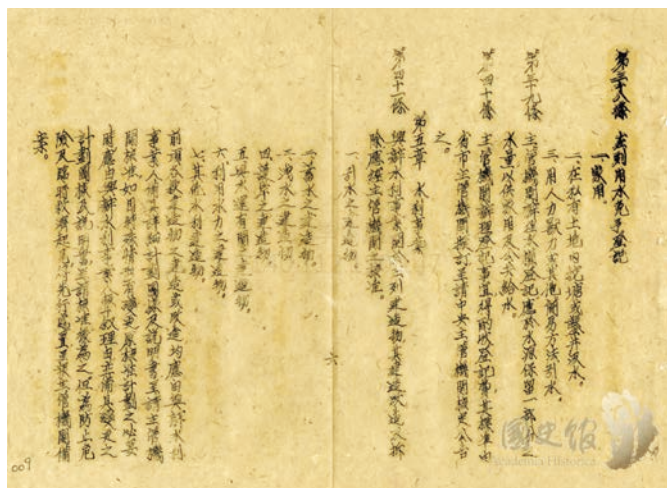 第三十八條　左列用水免予登記
一、家用
二、在私有土地內挖塘或鑿井汲水。
三、用人力獸力或其他簡易方法引水。
第三十九條　主管機關辦理水權登記應於水源保留一部之
水量以供家用及公共給水。
第四十條　主管機關辦理登記事宜得酌收登記費其標準由
省市主管機關擬訂呈請中央主管機關核定公布
之。
第五章　水利事業
第四十一條　興辦水利事業關於左列建造物其建造改造或拆
除應經主管機關之核准。
一、引水之建造物。
二、蓄水之建造物。
三、洩水之建造物。
四、護岸之建造物。
五、與水運有關之建造物。
六、利用水力之建造物。
七、其他水利建造物。
前項各款建造物之建造或改造均應由興辦水利
事業人備具詳細計劃圖樣及說明書呈請主管機
關核准如因特殊情形有變更原核准計劃之必要
時應由興辦水利事業人敘理由並備具變更之
計劃圖樣及說明書呈請核准後為之但為防止危
險及臨時救濟起見得先行處置呈報主管機關備
案。
六
009
國史館
Academia Historica